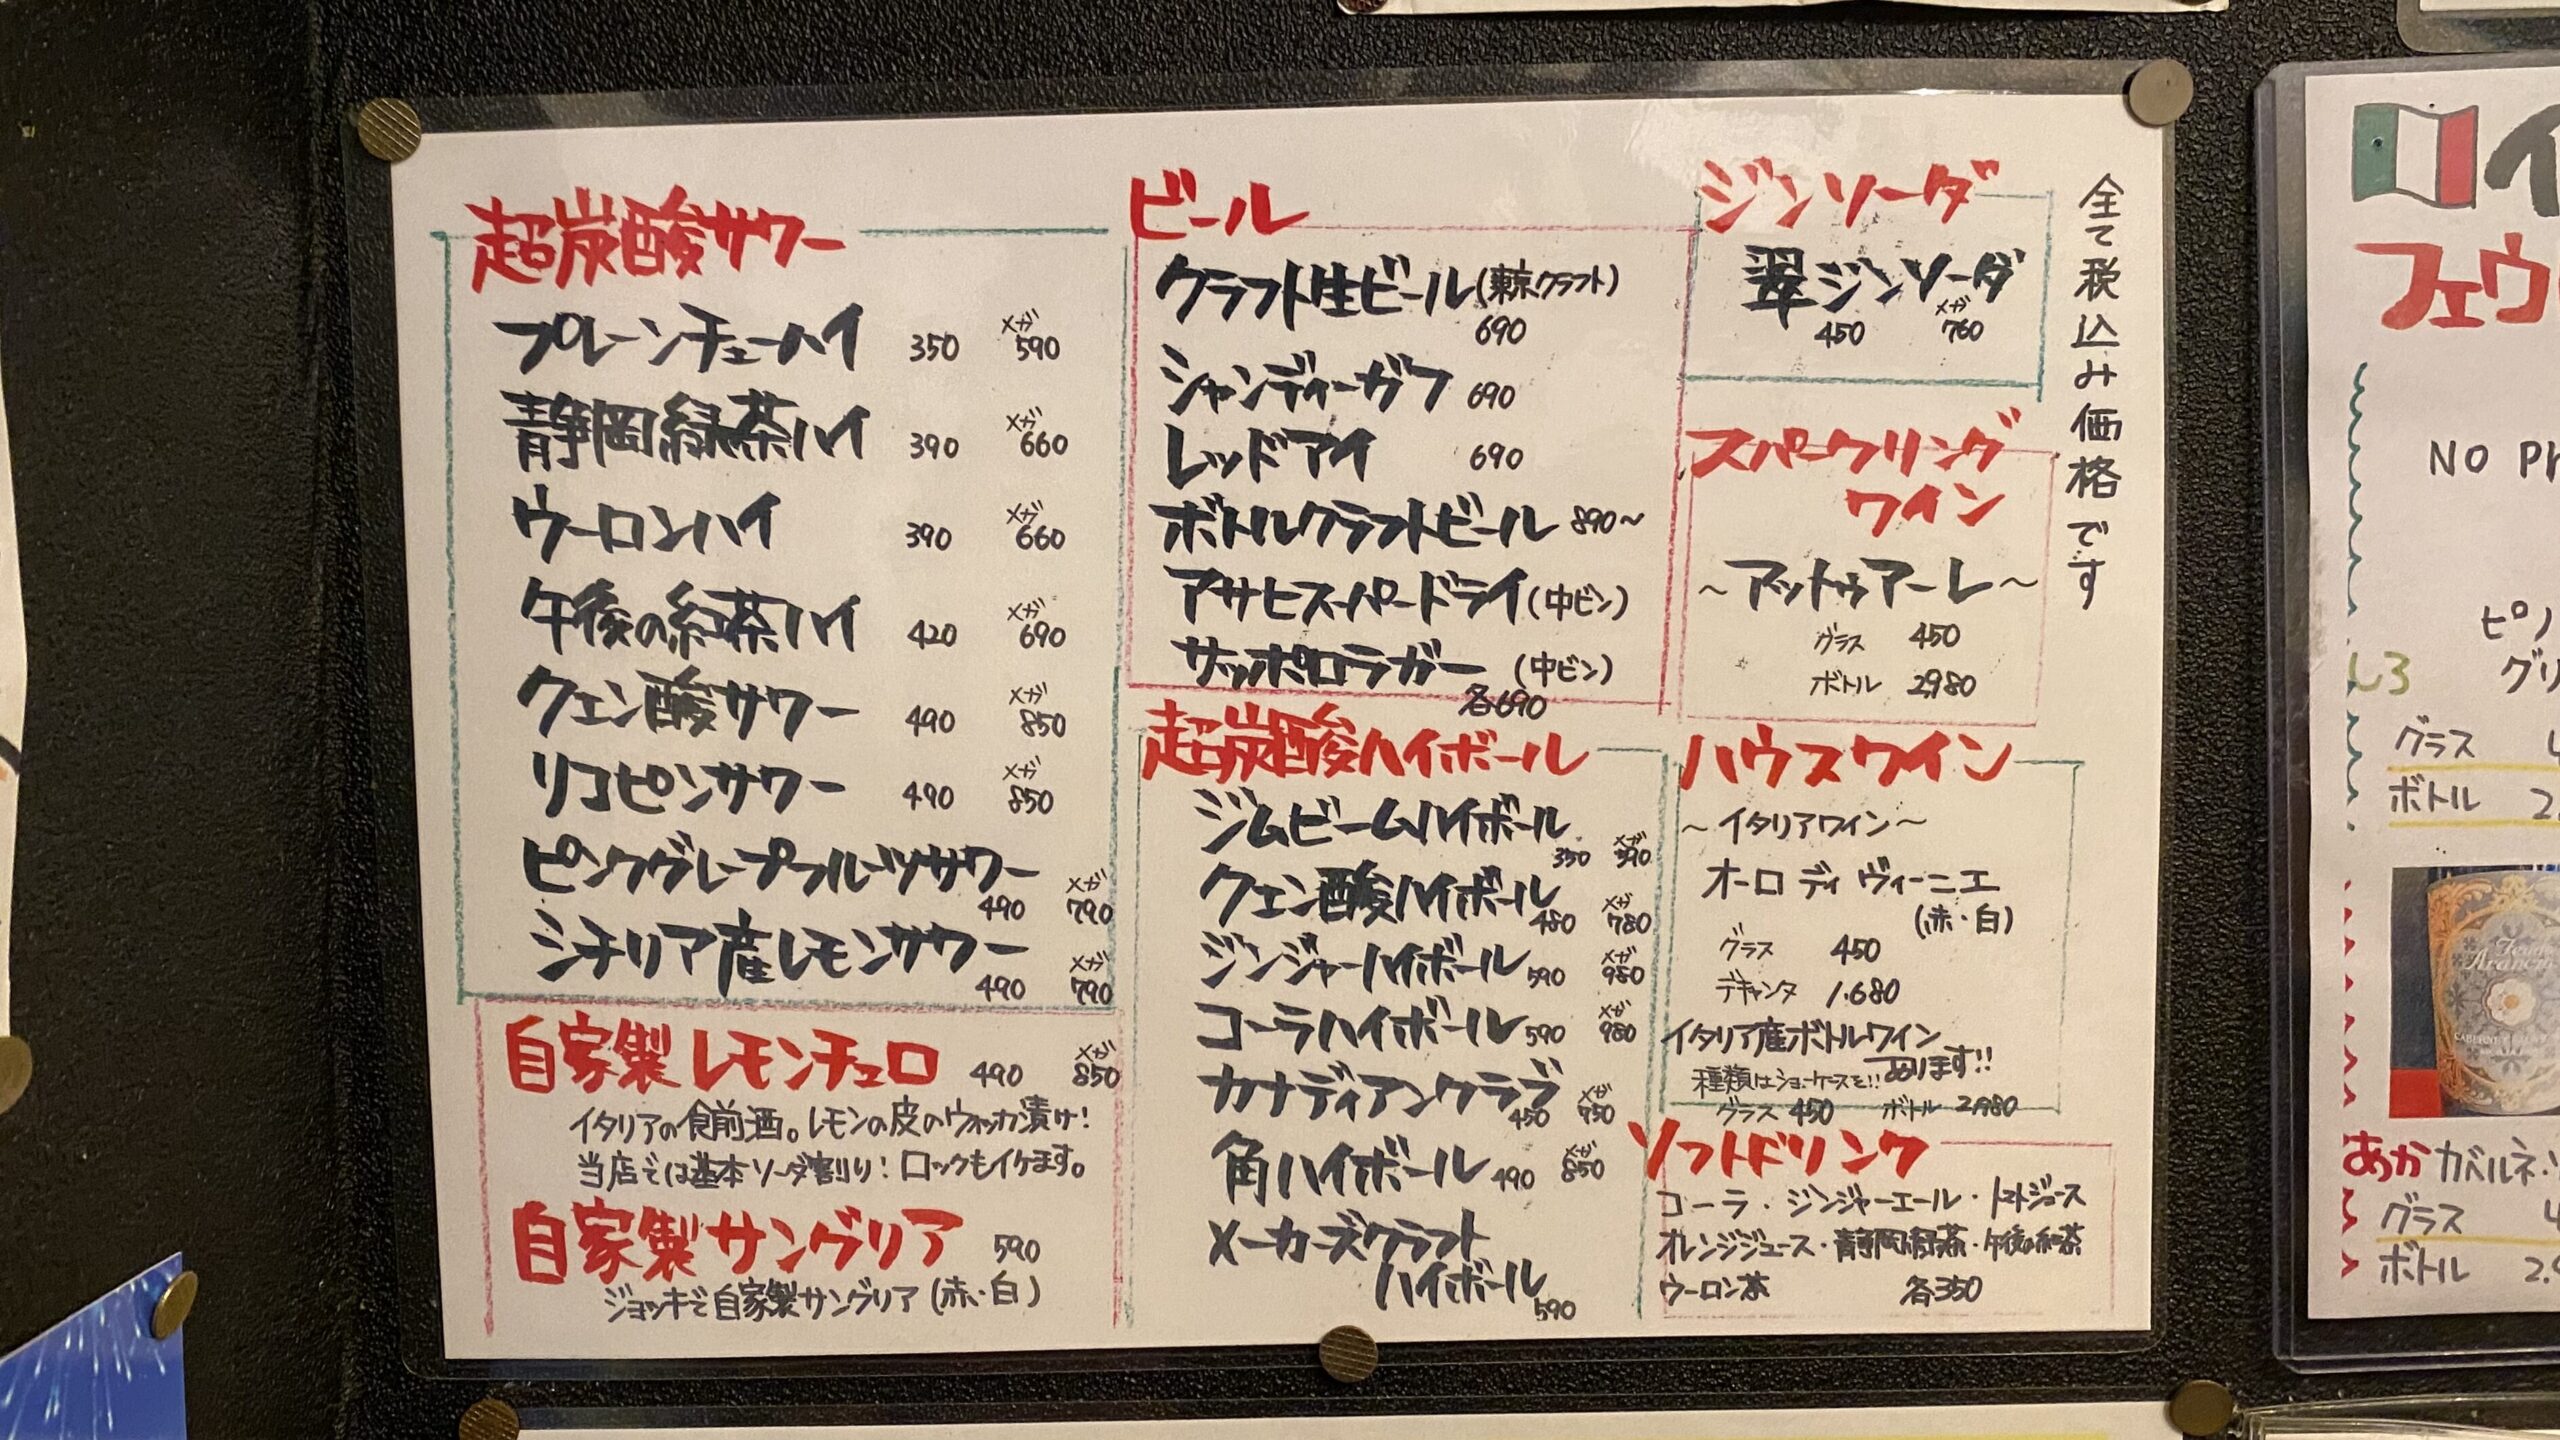 超炭酸サワー
プレーンチューハイ 350 メガ 590
静岡緑茶ハイ 390 メガ 660
ウーロンハイ 390 メガ 660
午後の紅茶ハイ 420 メガ 690
クエン酸サワー 490 メガ 850
リコピンサワー 490 メガ 850
ピンクグレープフルーツサワー 490 メガ 790
シチリア産レモンサワー 490 メガ 790
自家製レモンチェロ 490 メガ 850
イタリアの食前酒。レモンの皮のウォッカ漬け!
当店では基本ソーダ割り!ロックもイケます。
自家製サングリア 590
ジョッキで自家製サングリア(赤・白)
ビール
クラフト生ビール(東京クラフト)
690
シャンディーガフ 690
レッドアイ 690
ボトルクラフトビール 890〜
アサヒスーパードライ(中ビン)
サッポロラガー (中ビン)
各690
超炭酸ハイボール
ジムビームハイボール
350 メガ 590
クエン酸ハイボール
480 メガ 780
ジンジャーハイボール 590 メガ 980
コーラハイボール 590 メガ 980
カナディアンクラブ
450 メガ 750
角ハイボール 490 メガ 850
メーカーズクラフト
ハイボール 590
ジンソーダ
翠ジンソーダ
450 メガ 760
スパークリング
ワイン
〜アットゥアーレ〜
グラス 450
ボトル 2,980
ハウスワイン
〜イタリアワイン〜
オーロ ディ ヴィーニエ
(赤・白)
グラス 450
デキャンタ 1.680
イタリア産ボトルワイン
あります!!
種類はショーケースを!!
グラス 450 ボトル 2,980
ソフトドリンク
コーラ・ジンジャーエール・トマトジュース
オレンジジュース・静岡緑茶・午後の紅茶
ウーロン茶 各350
全て税込み価格です
イ
フェウ
NO
ピノ
グリ
グラス
ボトル
あか カベルネ・
グラス
ボトル